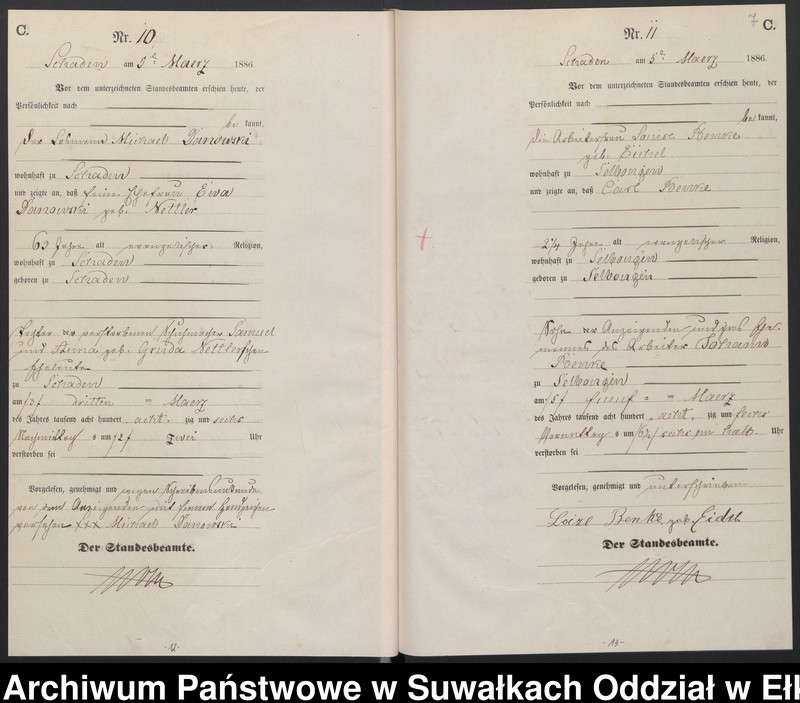 C.
Nr. 10
Schaden am 3t Maerz 1886.
Vor dem unterzeichneten Standesbeamten erschien heute, der
Persönlichkeit nach
be kannt,
der Losmann Michael Danowski
wohnhaft zu Schaden
und zeigte an, daß seine Ehefrau Ewa
Danowski geb. Nettler
63 Jahre alt evangelischer Religion,
wohnhaft zu Schaden
geboren zu Schaden
Tochter der verstorbenen Samuel
und Anna geb. Gruda Nettlerschen
Eheleute
zu Schaden
am /3/ dritten Maerz
des Jahres tausend acht hundert acht zig und sechs
Nachmittag s um /2/ zwei Uhr
verstorben sei
Vorgelesen, genehmigt und wegen Schreibensunkunde
von dem Anzeigenden mit seinem Handzeichen
versehen xxx Michael Danowski
Der Standesbeamte.
-12-
7
C.
Nr. 11
Schaden am 5t Maerz 1886.
Vor dem unterzeichneten Standesbeamten erschien heute, der
Persönlichkeit nach
be kannt,
die Arbeiterfrau Louise
geb.
wohnhaft zu Selbongen
und zeigte an, daß Carl
2 1/4 Jahre alt evangelischer Religion,
wohnhaft zu Selbongen
geboren zu Selbongen
Sohn der Anzeigenden und ihres Ehe-
mannes des Arbeiter Johann
zu Selbongen
am /5/ fuenf Maerz
des Jahres tausend acht hundert acht zig und sechs
Vormittag s um sechs ein halb Uhr
verstorben sei
Vorgelesen, genehmigt und unterschrieben
Benke geb
Der Standesbeamte.
-13-
Archiwum Państwowe w Suwałkach Oddział w Ełk